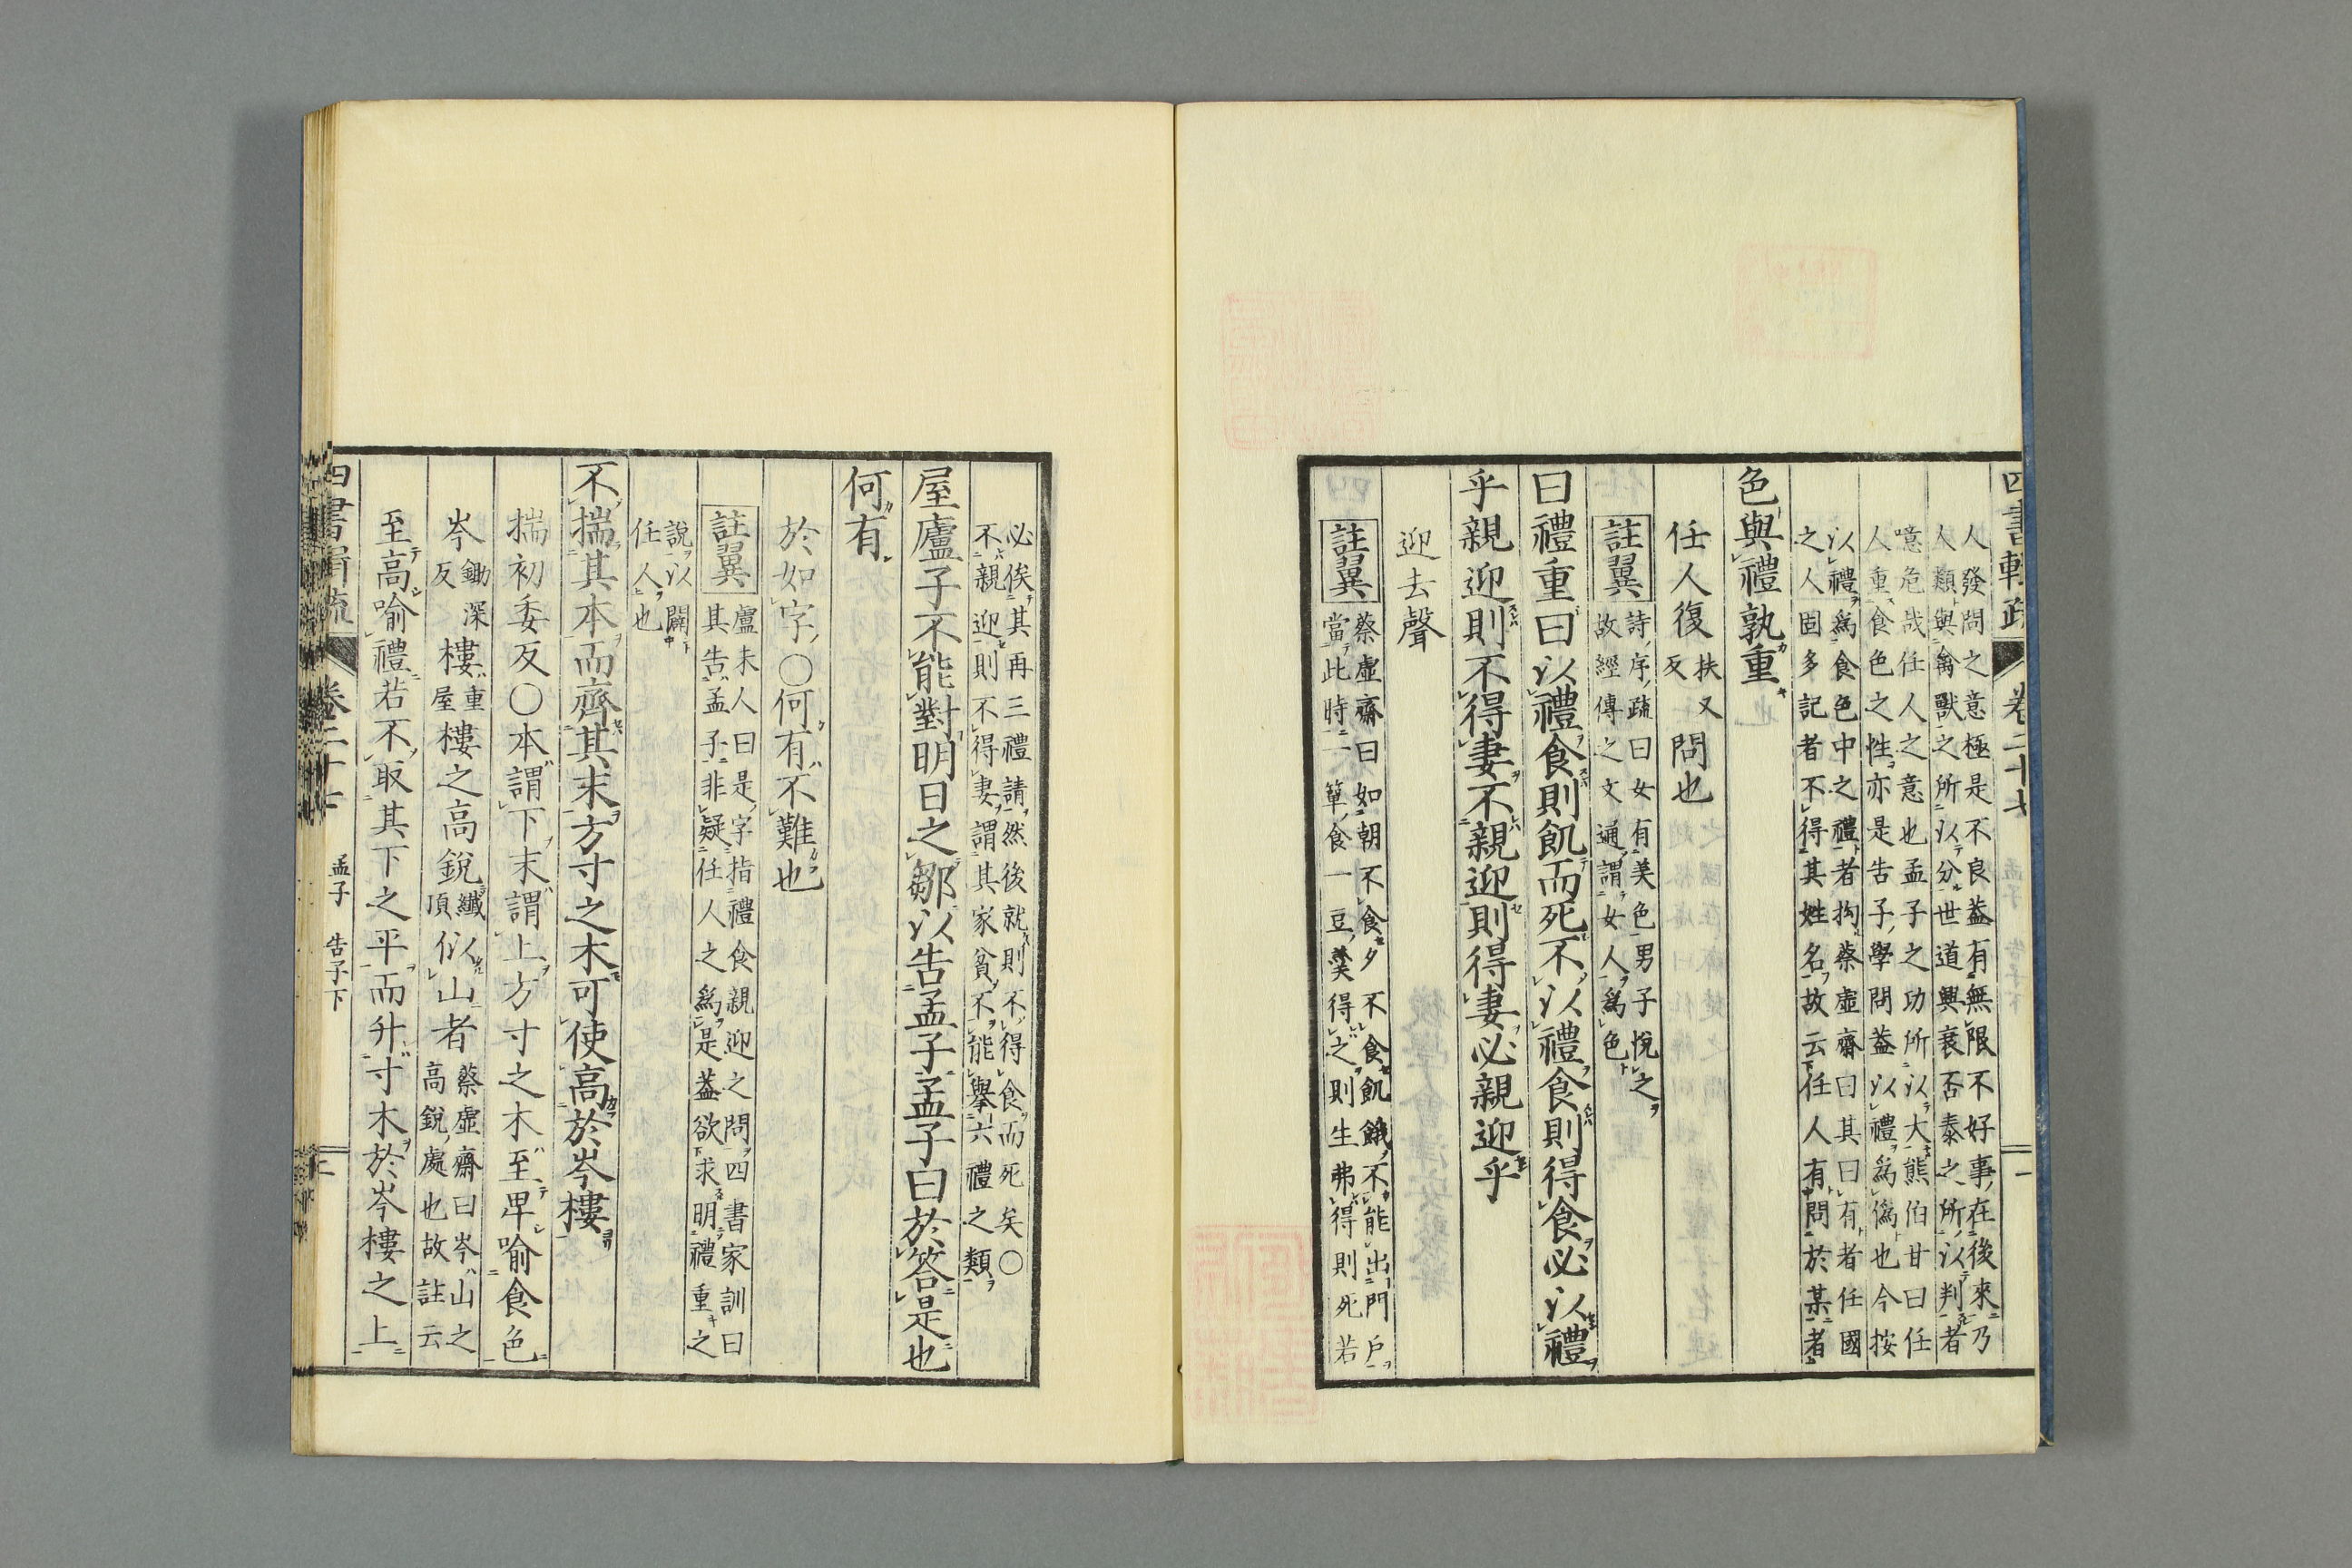 四書輯疏 卷二十七 孟子 告子下 一
人發問之意極是不良蓋有無限不好事在後來乃
人類與禽獸之所以分世道興衰否泰之所以判者
噫危哉任人之意也孟子之功所以大熊伯甘曰任
人重食色之性亦是告子學問蓋以禮爲僞也今按
以禮爲食色中之禮者拘蔡虛齋曰其曰有者任國
之人固多記者不得其姓名故云任人有問於某者
色與禮孰重
任人復扶又反問也
註翼 詩序疏曰女有美色男子悅之
故經傳之文通謂女人爲色
曰禮重曰以禮食則飢而死不以禮食則得食必以禮
乎親迎則不得妻不親迎則得妻必親迎乎
迎去聲
註翼 蔡虛齋曰如朝不食夕不食飢餓不能出門戶
當此時一簞食一豆羹得之則生弗得則死若
必俟其再三禮請然後就則不得食而死矣〇
不親迎則不得妻謂其家貧不能舉六禮之類
屋廬子不能對明日之鄒以告孟子孟子曰於答是也
何有
於如字〇何有不難也
註翼 盧未人曰是字指禮食親迎之問四書家訓曰
其告孟子非疑任人之爲是蓋欲求明禮重之
說以闢
任人也
不揣其本而齊其末方寸之木可使高於岑樓
揣初委反〇本謂下末謂上方寸之木至卑喻食色
岑鋤深反樓重屋樓之高銳纖頂似山者蔡虛齋曰岑山之高銳處也故註云
至高喻禮若不取其下之平而升寸木於岑樓之上
四書輯疏 卷二十七 孟子 告子下 二